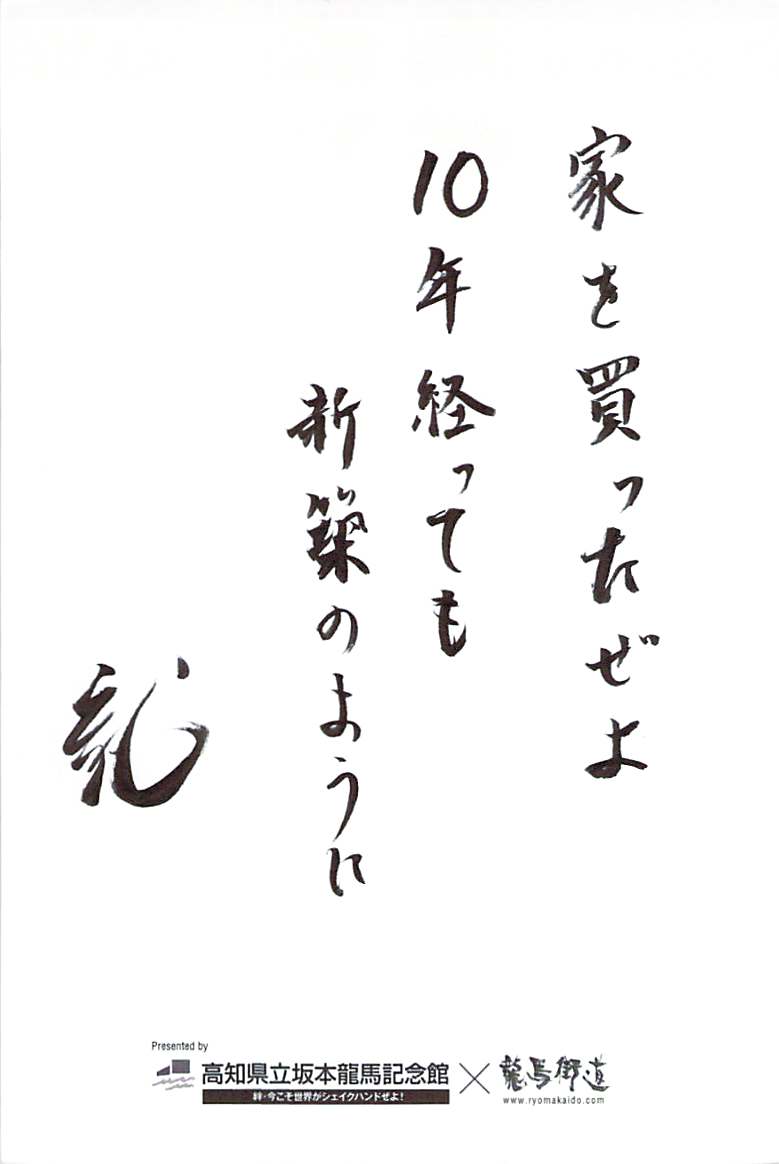 家を買ったぜよ
10年経っても
新築のように
龍
Presented by
高知県立坂本龍馬記念館
絆・今こそ世界がシェイクハンドぜよ!
×
龍馬街道
www.ryomakaido.com